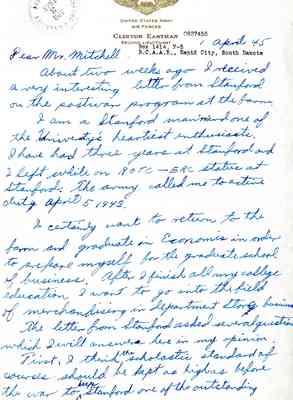 UNITED STATES ARMY
AIR FORCES
CLINTON EASTMAN 0837455
SECOND LIEUTENANT
Box 1414, Y-5
R.C.A.A.B., Rapid City, South Dakota
1 April 45
Dear Mr. Mitchell
About two weeks ago I received
a very interesting letter from Stanford
on the postwar program at the farm.
I am a Stanford man and one of
the University's heartiest enthusiasts.
I have had three years at Stanford and
I left while on ROTC-ERC status at
Stanford. The army called me to active
duty April 5 1943.
I certainly want to return to the
farm and graduate in Economics in order
to prepare myself for the graduate school
of business. After I finish all my college
education, I want to go into the field
of merchandising in department store business
The letter from Stanford asked several questions
which I will answer here in my opinion.
First, I think the scholastic standard of
courses should be kept as high as before
the war to Stanford one of the outstanding